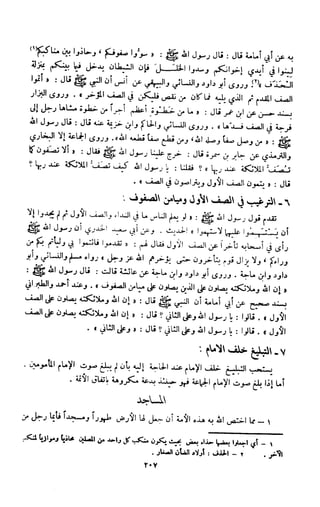 به عن أبي أمامة قال : قال رسول الله ﷺ : « سوّوا صفوفكم ، وحاذوا بين مناكبكم(١)
لينوا في أيدي إخوانكم وسدوا الخلل فإن الشيطان يدخل فيما بينكم بمنزلة
الحذف »(٢) وروى أبو داود والنسائي والبيهقي عن أنس أن النبي ﷺ قال : « أتموا
الصف المقدم ثم الذي يليه فما كان من نقص فليكن في الصف المؤخر » . وروى البزار
بسند حسن عن ابن عمر قال : « ما من خطوة أعظم أجراً من خطوة مشاها رجل إلى
فرجة في الصف فسدها » . وروى النسائي والحاكم وابن خزيمة عنه قال : قال رسول الله
ﷺ : « من وصل صفاً وصله الله ، ومن قطع صفاً قطعه الله » . وروى الجماعة إلا البخاري
والترمذي عن جابر بن سمرة قال : خرج علينا رسول الله ﷺ فقال : « ألا تصفون كما
تصف الملائكة عند ربها » ؟ فقلنا : يا رسول الله كيف تصف الملائكة عند ربها ؟
قال : « يتمون الصف الأول ويتراصون في الصف » .
٦ - الترغيب في الصف الأول وميامن الصفوف :
تقدم قول رسول الله ﷺ : « لو يعلم الناس ما في النداء والصف الأول ثم لم يجدوا إلا
أن يستهموا عليها لاستهموا » الحديث . وعن أبي سعيد الخدري أن رسول الله ﷺ
رأى في أصحابه تأخراً عن الصف الأول فقال لهم : « تقدموا فائتموا بي وليأتم بكم من
وراءكم ، ولا يزال قوم يتأخرون حتى يؤخرهم الله عز وجل » رواه مسلم والنسائي وأبو
داود وابن ماجة . وروى أبو داود وابن ماجة عن عائشة قالت : قال رسول الله ﷺ :
« إن الله وملائكته يصلون على الذين يصلون على ميامن الصفوف » . وعند أحمد والطبراني
بسند صحيح عن أبي أمامة أن النبي ﷺ قال : « إن الله وملائكته يصلون على الصف
الأول » . قالوا : يا رسول الله وعلى الثاني ؟ قال : « إن الله وملائكته يصلون على الصف
الأول » . قالوا : يا رسول الله وعلى الثاني ؟ قال : « وعلى الثاني » .
٧ - التبليغ خلف الإمام :
يستحب التبليغ خلف الإمام عند الحاجة إليه بأن لم يبلغ صوت الإمام المأمومين .
أما إذا بلغ صوت الإمام الجماعة فهو حينئذ بدعة مكروهة باتفاق الأئمة .
المساجد
١ - مما اختص الله به هذه الأمة أن جعل لها الأرض طهوراً ومسجداً فأيما رجل من
١ - أي اجعلوا بعضها حذاء بعض بحيث يكون منكب كل واحد من المصلين محاذياً وموازياً لمنكب
الآخر . ٢ - الحذف : أولاد الضأن الصغار .
٢٠٧